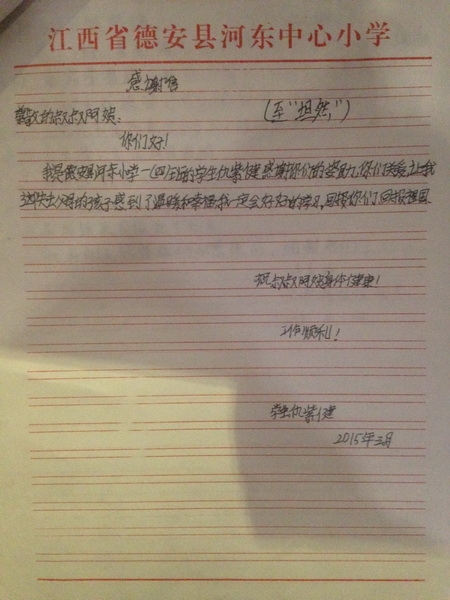 江西省德安县河东中心小学
感谢信
(至"坦然")
尊敬的叔叔阿姨:
你们好!
我是德安县河东小学一(四)班的学生仇紫健感谢你们的资助,你们关爱让我
这失去父母的孩子感到了温暖和幸福我一定会好好的学习,回报你们回报祖国.
祝叔叔阿姨身体健康!
工作顺利!
学生仇紫健
2015年三月